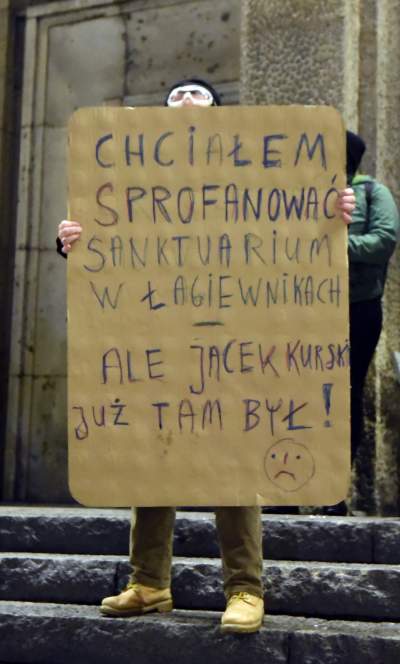 CHCIAŁEM
SPROFANOWAĆ
SANKTUARIUM
W ŁAGIEWNIKACH
–
ALE JACEK KURSKI
JUŻ TAM BYŁ!